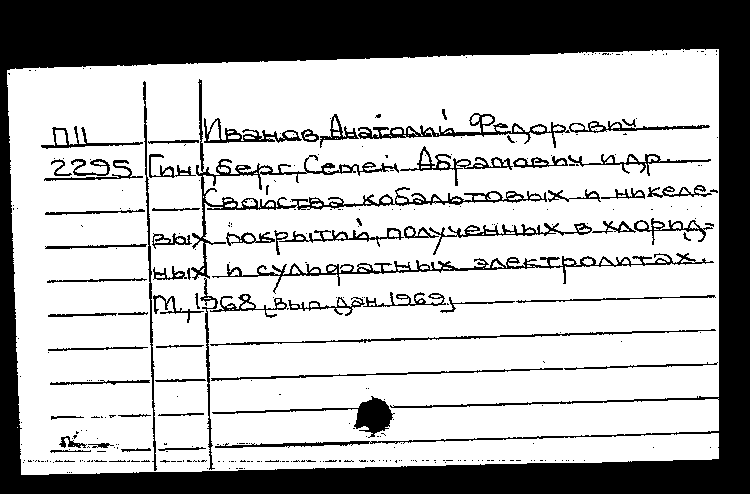 П11 Иванов, Анатолий Федорович.
2295 Гинцберг, Семен Абрамович и др.
Свойства кобальтовых и никеле-
вых покрытий, полученных в хлорид-
ных и сульфатных электролитах.
М., 1968, [вып. дан. 1969]